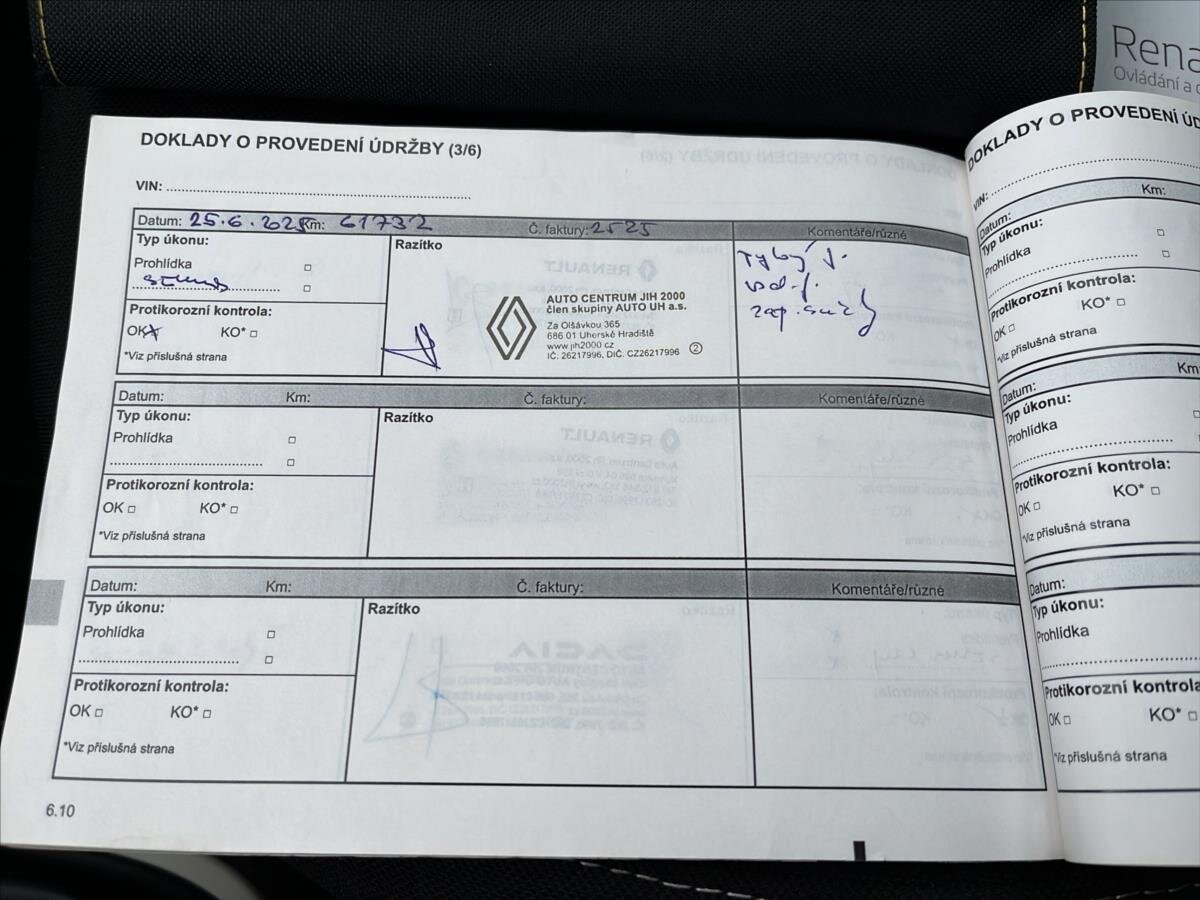 Rena
Ovládání a o
DOKLADY O PROVEDENÍ ÚDRŽBY (3/6)
VIN:
Datum: 25.6.2025 Km: 61732 Č. faktury: 2525 Komentáře/různé
Typ úkonu:
Prohlídka
Protikorozní kontrola:
OK KO*
*Viz příslušná strana
Razítko
AUTO CENTRUM JIH 2000
člen skupiny AUTO UH a.s.
Za Olšávkou 365
686 01 Uherské Hradiště
www.jih2000.cz
IČ: 26217996, DIČ. CZ26217996 2
Datum: Km: Č. faktury: Komentáře/různé
Typ úkonu:
Prohlídka
Protikorozní kontrola:
OK KO*
*Viz příslušná strana
Razítko
Datum: Km: Č. faktury: Komentáře/různé
Typ úkonu:
Prohlídka
Protikorozní kontrola:
OK KO*
*Viz příslušná strana
Razítko
6.10
DOKLADY O PROVEDENÍ ÚD
VIN:
Datum: Km:
Typ úkonu:
Prohlídka
Protikorozní kontrola:
OK KO*
*Viz příslušná strana
Datum: Km
Typ úkonu:
Prohlídka
Protikorozní kontrola:
OK KO*
*Viz příslušná strana
Datum:
Typ úkonu:
Prohlídka
Protikorozní kontrola
OK KO*
*Viz příslušná strana